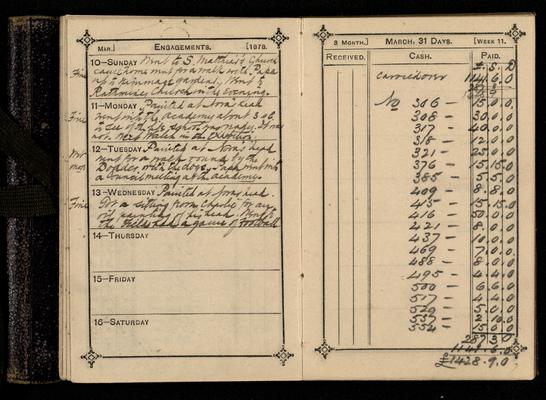 Mar.] Engagements. [1878.
10—Sunday Went to S. Matthias' Church
came home went for a walk with Papa
up to Kimmage gardens, Went to
Rathmines Church in the evening.
Fine
11—Monday Painted at Nora's head
went into the academy about 3 o'c
to see if the
not next Walker in the Exhibition
Fine
12—Tuesday Painted at Nora's head
went for a walk round by the
Dodder, with the dogs. Papa went into
a council meeting at the academy
13—Wednesday Painted at Nora's head.
For a sitting from Charlie for my
oil painting of his head. Went to
the field had a game of football
Fine
14—Thursday
15—Friday
16—Saturday
3 Month.] March, 31 Days. [Week 11.
Received. Cash. Paid.
£. S. D
Carried over 1141.6.0
No 306 — 15.0.0
308 — 30.0.0
317 — 40.0.0
318 — 12.0.0
321 — 25.0.0
376 — 15.15.0
385 — 5.5.0
409 — 8.8.0
415 — 15.15.0
416 — 50.0.0
421 — 8.0.0
437 — 10.0.0
469 — 7.0.0
488 — 8.0.0
495 — 4.4.0
500 — 6.6.0
517 — 4.4.0
529 — 5.0.0
537 — 2.10.0
554 — 15.0.0
287.3.0
1141.6.0
£1428.9.0